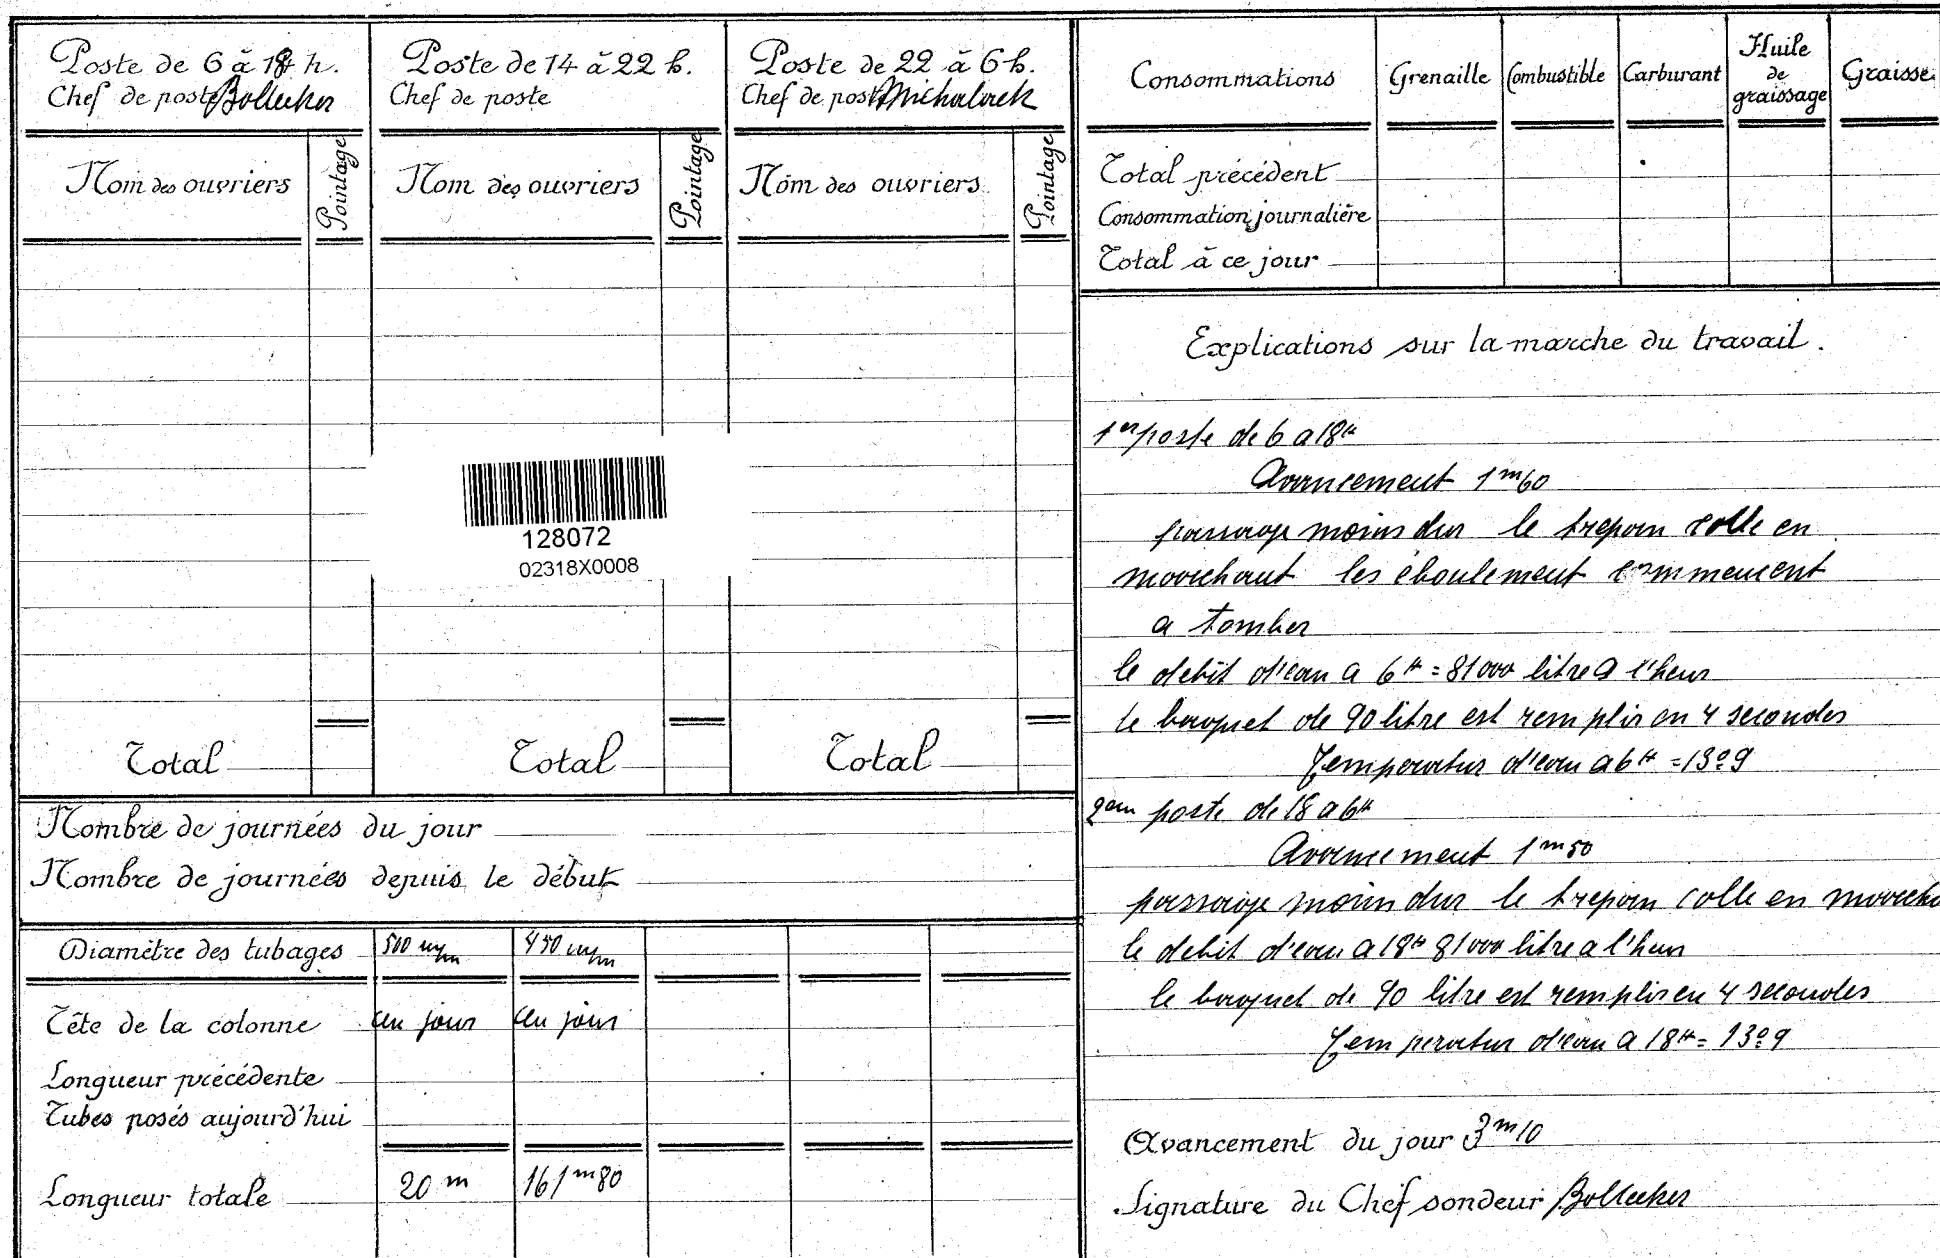 Poste de 6 à 18 h.
Chef de poste Bollecker
Poste de 14 à 22 h.
Chef de poste
Poste de 22 à 6 h.
Chef de poste
Nom des ouvriers
Pointage
Nom des ouvriers
Pointage
Nom des ouvriers
Pointage
Total
Total
Total
128072
02318X0008
Nombre de journées du jour
Nombre de journées depuis le début
Diamètre des tubages 500 m/m 450 m/m
Tête de la colonne au jour au jour
Longueur précédente
Tubes posés aujourd'hui
Longueur totale 20 m 161 m 80
Consommations Grenaille Combustible Carburant Huile de graissage Graisse
Total précédent
Consommation journalière
Total à ce jour
Explications sur la marche du travail.
1er poste de 6 a 18h
Avancement 1m60
passage moins dur le trepan colle en
marchant les éboulement commencent
a tomber
le debit d'eau a 6h = 81000 litre a l'heur
le baquet de 90 litre est remplir en 4 secondes
Temperatur d'eau a 6h = 13°9
2em poste de 18 a 6h
Avancement 1m50
passage moin dur le trepan colle en marcha
le debit d'eau a 18h 81000 litre a l'heur
le baquet de 90 litre est remplir en 4 secondes
Temperatur d'eau a 18h = 13°9
Avancement du jour 3m10
Signature du Chef sondeur Bollecker